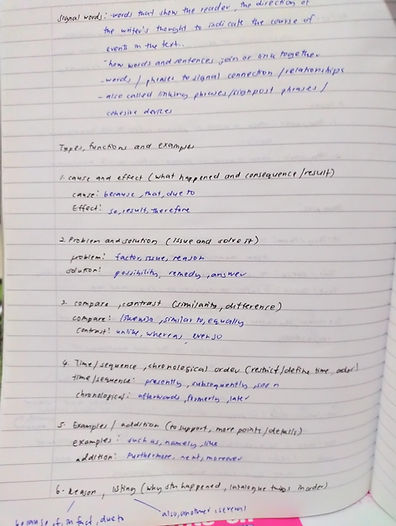 signal words : - words that show the reader, the direction of
the writer's thought to indicate the course of
events in the text..
- how words and sentences join or link together
- words / phrases to signal connection / relationships
- also called linking phrases / signpost phrases /
cohesive devices
Types, functions and examples
1. cause and effect (what happened and consequence / result)
cause: because, that, due to
Effect: so, result, therefore
2. Problem and solution (issue and solve it)
problem: factor, issue, reason
solution: possibility, remedy, answer
3. compare, contrast (similarity, difference)
compare: likewise, similar to, equally
contrast: unlike, whereas, even so
4. Time / sequence, chronological order (restrict / define time, order)
time / sequence: presently, subsequently, soon
chronological: afterwards, formerly, later
5. Examples / addition (to support, more points / details)
examples: such as, namely, like
addition: Furthermore, next, moreover
6. Reason, listing (why sth happened, things in order)
because of, in fact, due to
also, another, several